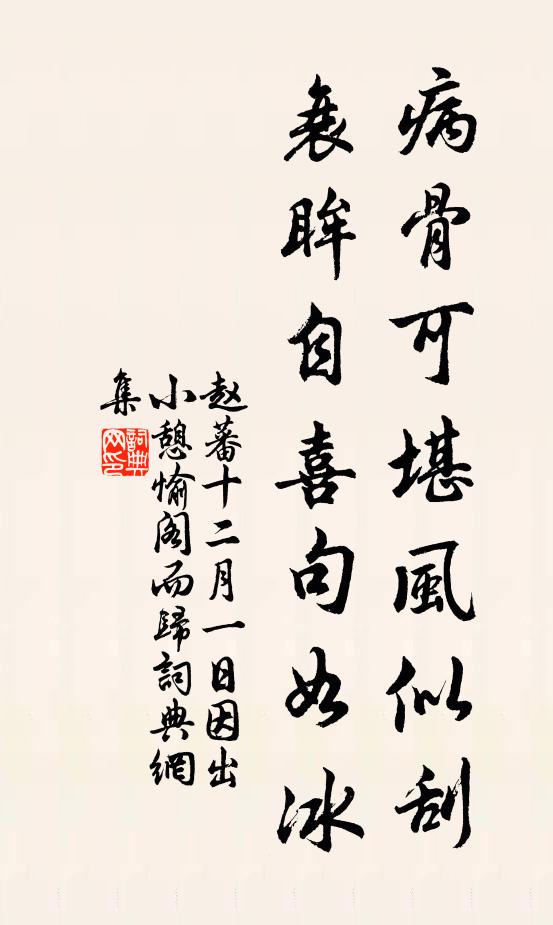 病骨可堪風似刮
衰眸自喜句如冰
赵蕃十二月一日因出
小憩愉閣而歸詞典網
集
詞典
网印